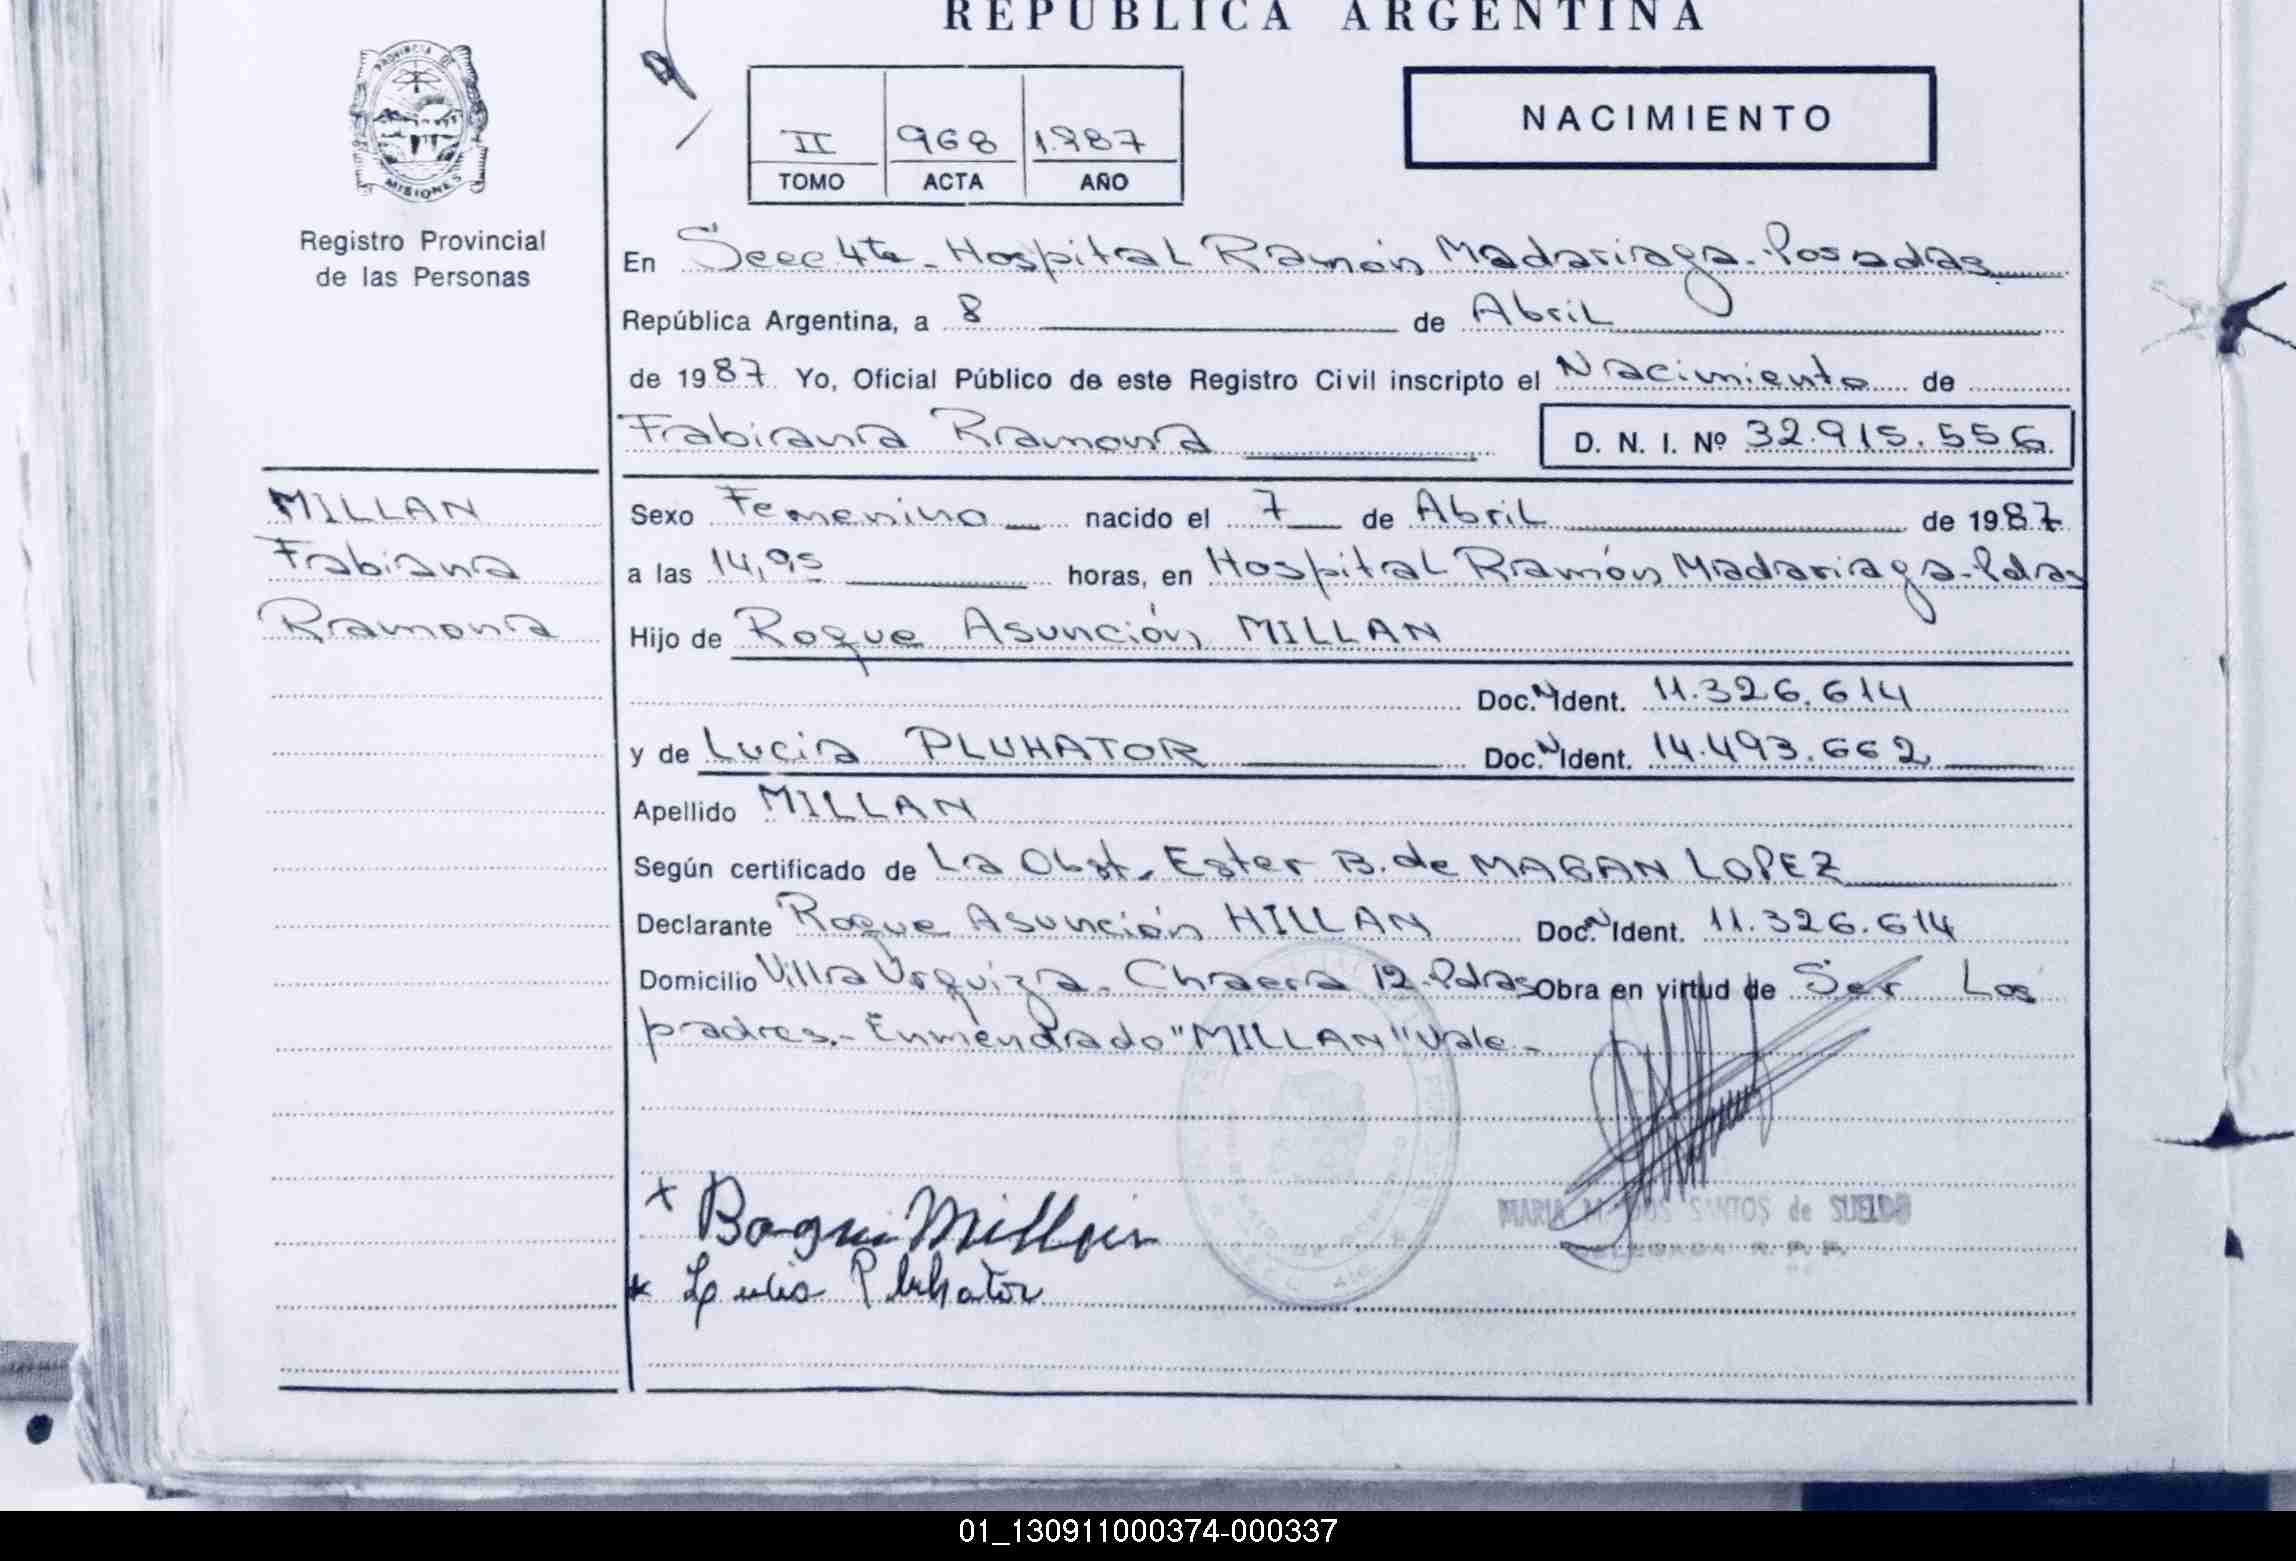 REPUBLICA ARGENTINA
PROVINCIA DE
MISIONES
Registro Provincial
de las Personas
II 968 1.987
TOMO ACTA AÑO
NACIMIENTO
En Secc 4ta - Hospital Ramón Madariaga - Posadas
República Argentina, a 8 de Abril
de 1987 Yo, Oficial Público de este Registro Civil inscripto el Nacimiento de
Fabiana Ramona
D. N. I. Nº 32.915.556
MILLAN
Fabiana
Ramona
Sexo Femenino nacido el 7 de Abril de 1987
a las 14,05 horas, en Hospital Ramón Madariaga - Pdas
Hijo de Roque Asunción MILLAN
Doc. N Ident. 11.326.614
y de Lucia PLUHATOR Doc. N Ident. 14.493.662
Apellido MILLAN
Según certificado de La Obst. Ester B. de MAGAN LOPEZ
Declarante Roque Asunción MILLAN Doc. N Ident. 11.326.614
Domicilio Villa Urquiza - Chacra 12 - Pdas Obra en virtud de Ser Los
padres.- Enmendrado "MILLAN" Vale -
x Roque Millan
x Lucia Pluhator
MARIA M. DOS SANTOS de SUELDO
01_130911000374-000337